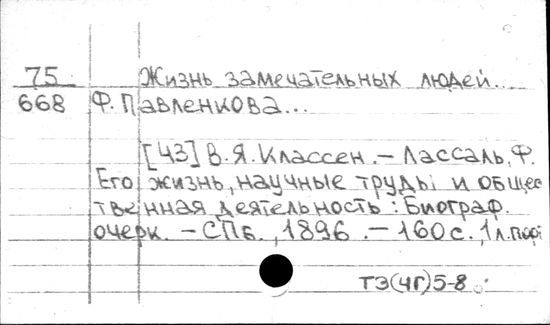 75 Жизнь замечательных людей...
668 Ф. Павленкова...
[43] В.Я. Классен. – Лассаль, Ф.
Его жизнь, научные труды и общес
твенная деятельность: Биограф.
очерк. – СПб., 1896. – 160 с., 1 л. порт
ТЭ(4Г)5-8